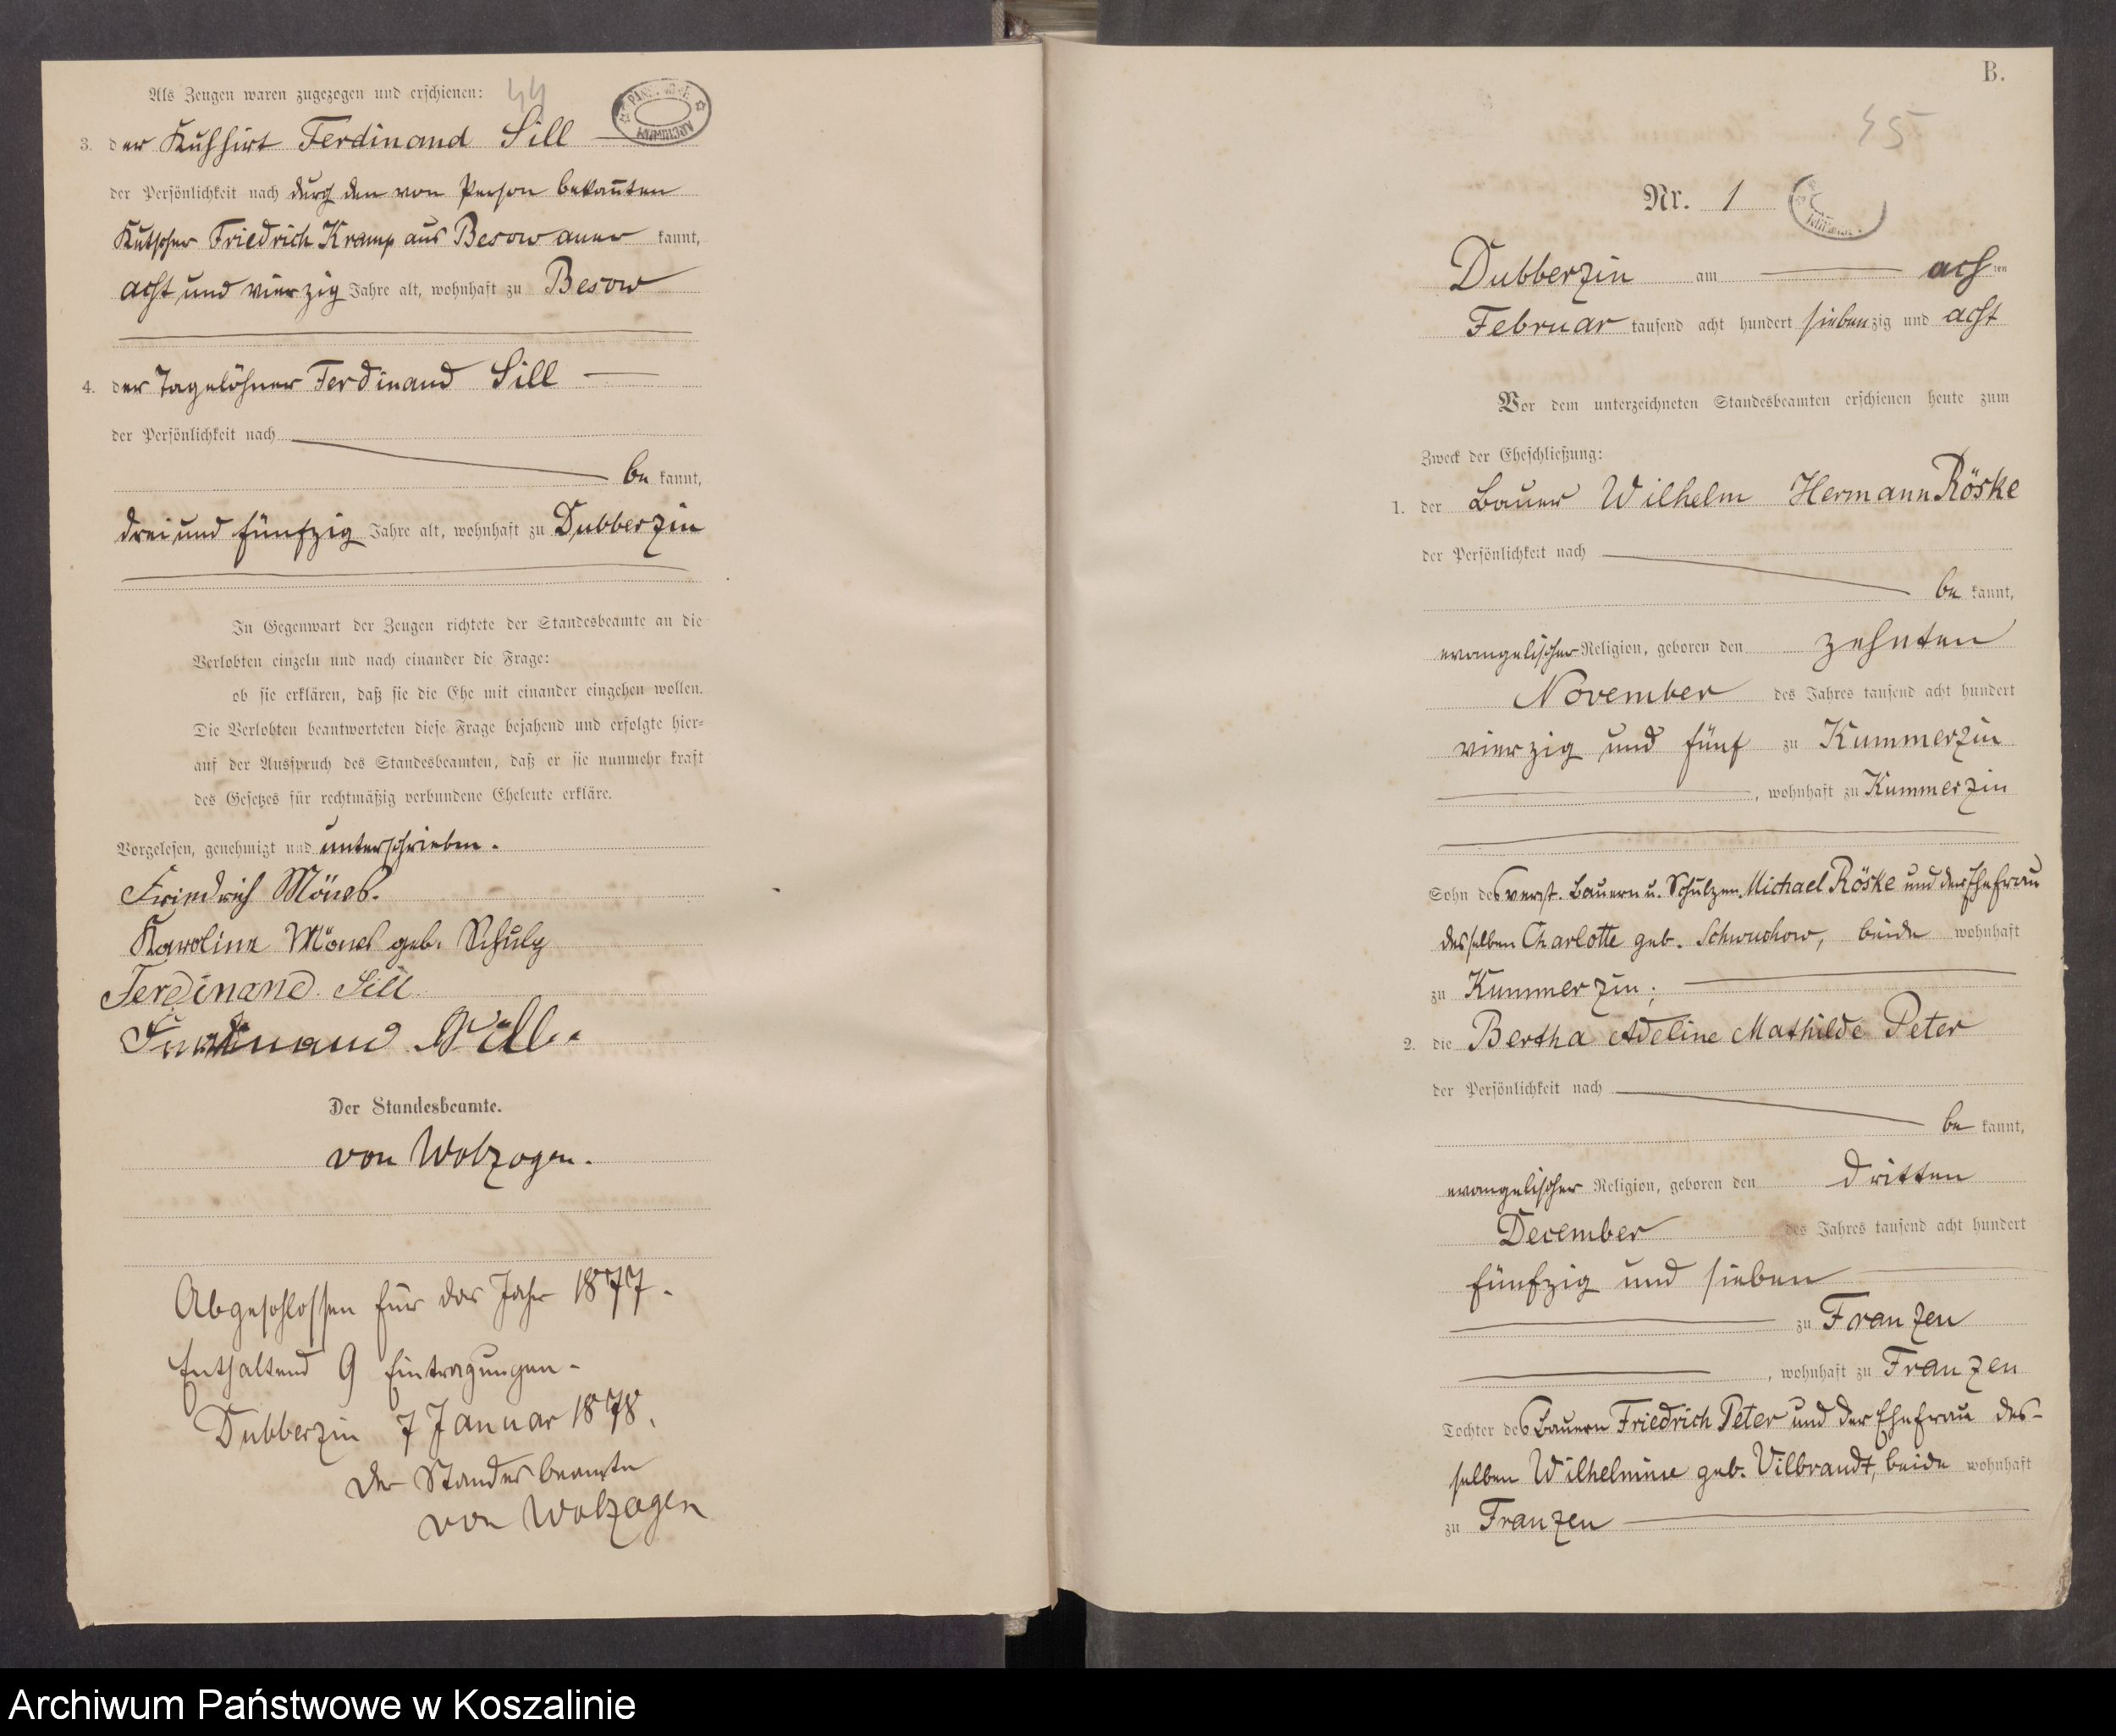 Als Zeugen waren zugezogen und erschienen: 44
3. der Kuhhirt Ferdinand Sill
der Persönlichkeit nach durch den von Person bekannten
Kutscher Friedrich Kramp aus Besow aner kannt,
acht und vierzig Jahre alt, wohnhaft zu Besow
4. der Tagelöhner Ferdinand Sill
der Persönlichkeit nach
be kannt,
drei und fünfzig Jahre alt, wohnhaft zu Dubberzin
In Gegenwart der Zeugen richtete der Standesbeamte an die
Verlobten einzeln und nach einander die Frage:
ob sie erklären, daß sie die Ehe mit einander eingehen wollen.
Die Verlobten beantworteten diese Frage bejahend und erfolgte hier-
auf der Ausspruch des Standesbeamten, daß er sie nunmehr kraft
des Gesetzes für rechtmäßig verbundene Eheleute erkläre.
Vorgelesen, genehmigt und unterschrieben.
Friedrich
Karoline geb. Schulz
Ferdinand Sill
Ferdinand Sill.
Der Standesbeamte.
von Wolzogen.
Abgeschlossen für das Jahr 1877.
Enthaltend 9 Eintragungen.
Dubberzin 7 Januar 1878.
Der Standesbeamte
von Wolzogen
B.
45
Nr. 1
Dubberzin am acht ten
Februar tausend acht hundert sieben zig und acht
Vor dem unterzeichneten Standesbeamten erschienen heute zum
Zweck der Eheschließung:
1. der Bauer Wilhelm Hermann Röske
der Persönlichkeit nach
be kannt,
evangelischer Religion, geboren den zehnten
November des Jahres tausend acht hundert
vierzig und fünf zu Kummerzin
, wohnhaft zu Kummerzin
Sohn des verst. Bauern u. Schulzen Michael Röske und der Ehefrau
desselben Charlotte geb. Schwuchow, beide wohnhaft
zu Kummerzin;
2. die Bertha Adeline Mathilde Peter
der Persönlichkeit nach
be kannt,
evangelischer Religion, geboren den dritten
December des Jahres tausend acht hundert
fünfzig und sieben
zu Franzen
, wohnhaft zu Franzen
Tochter des Bauern Friedrich Peter und der Ehefrau des-
selben Wilhelmine geb. Vilbrandt, beide wohnhaft
zu Franzen
Archiwum Państwowe w Koszalinie